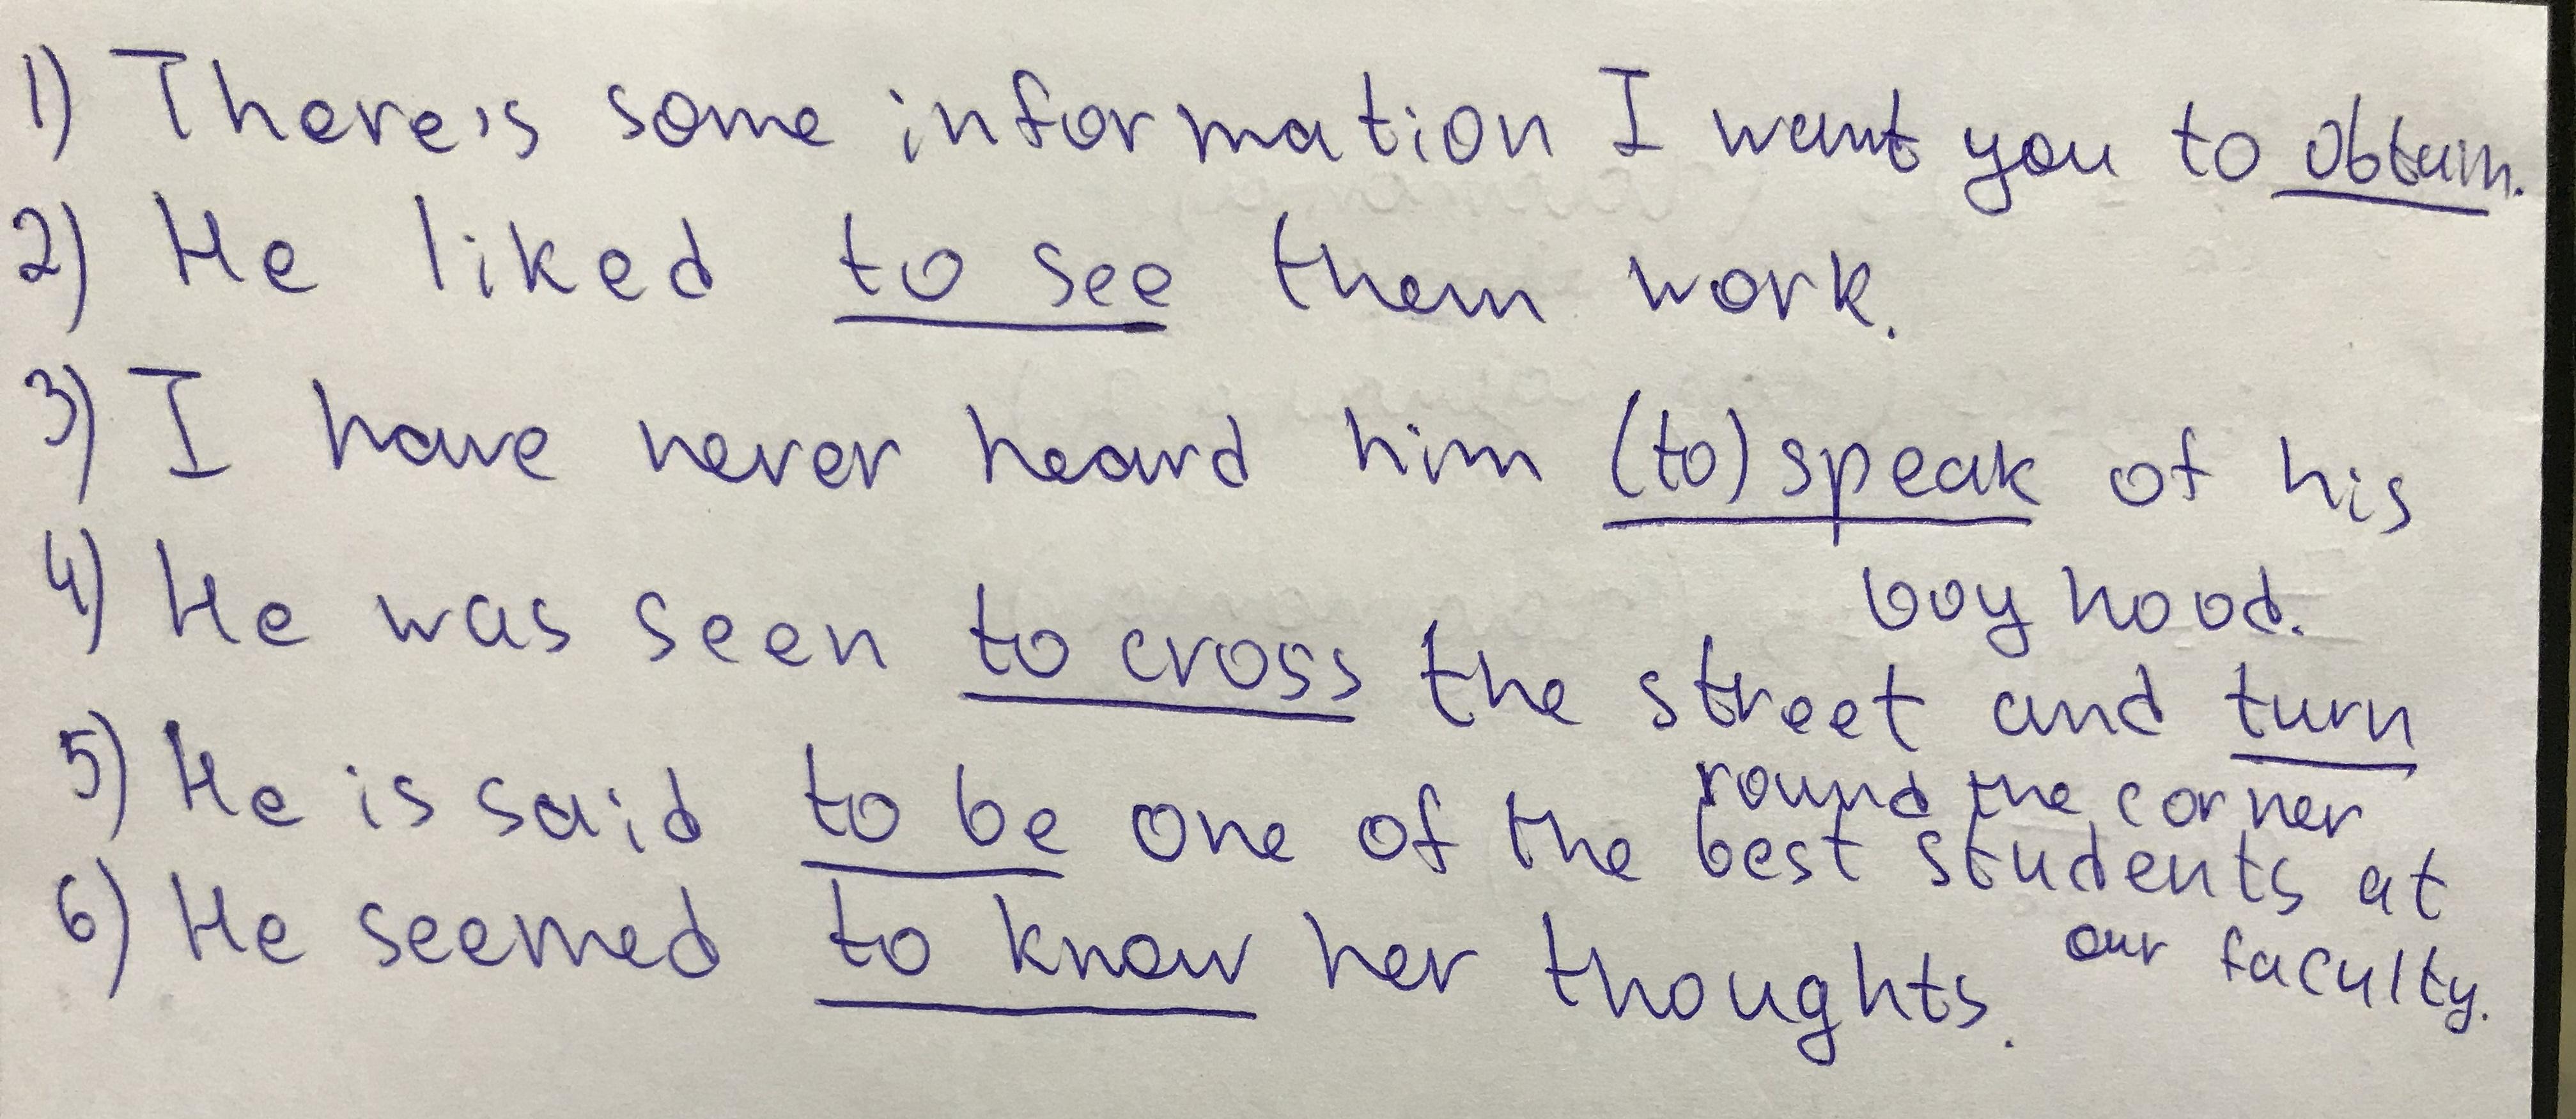 1) There's some information I want you to obtain.
2) He liked to see them work.
3) I have never heard him (to) speak of his
boyhood.
4) He was seen to cross the street and turn
round the corner
5) He is said to be one of the best students at
our faculty.
6) He seemed to know her thoughts.